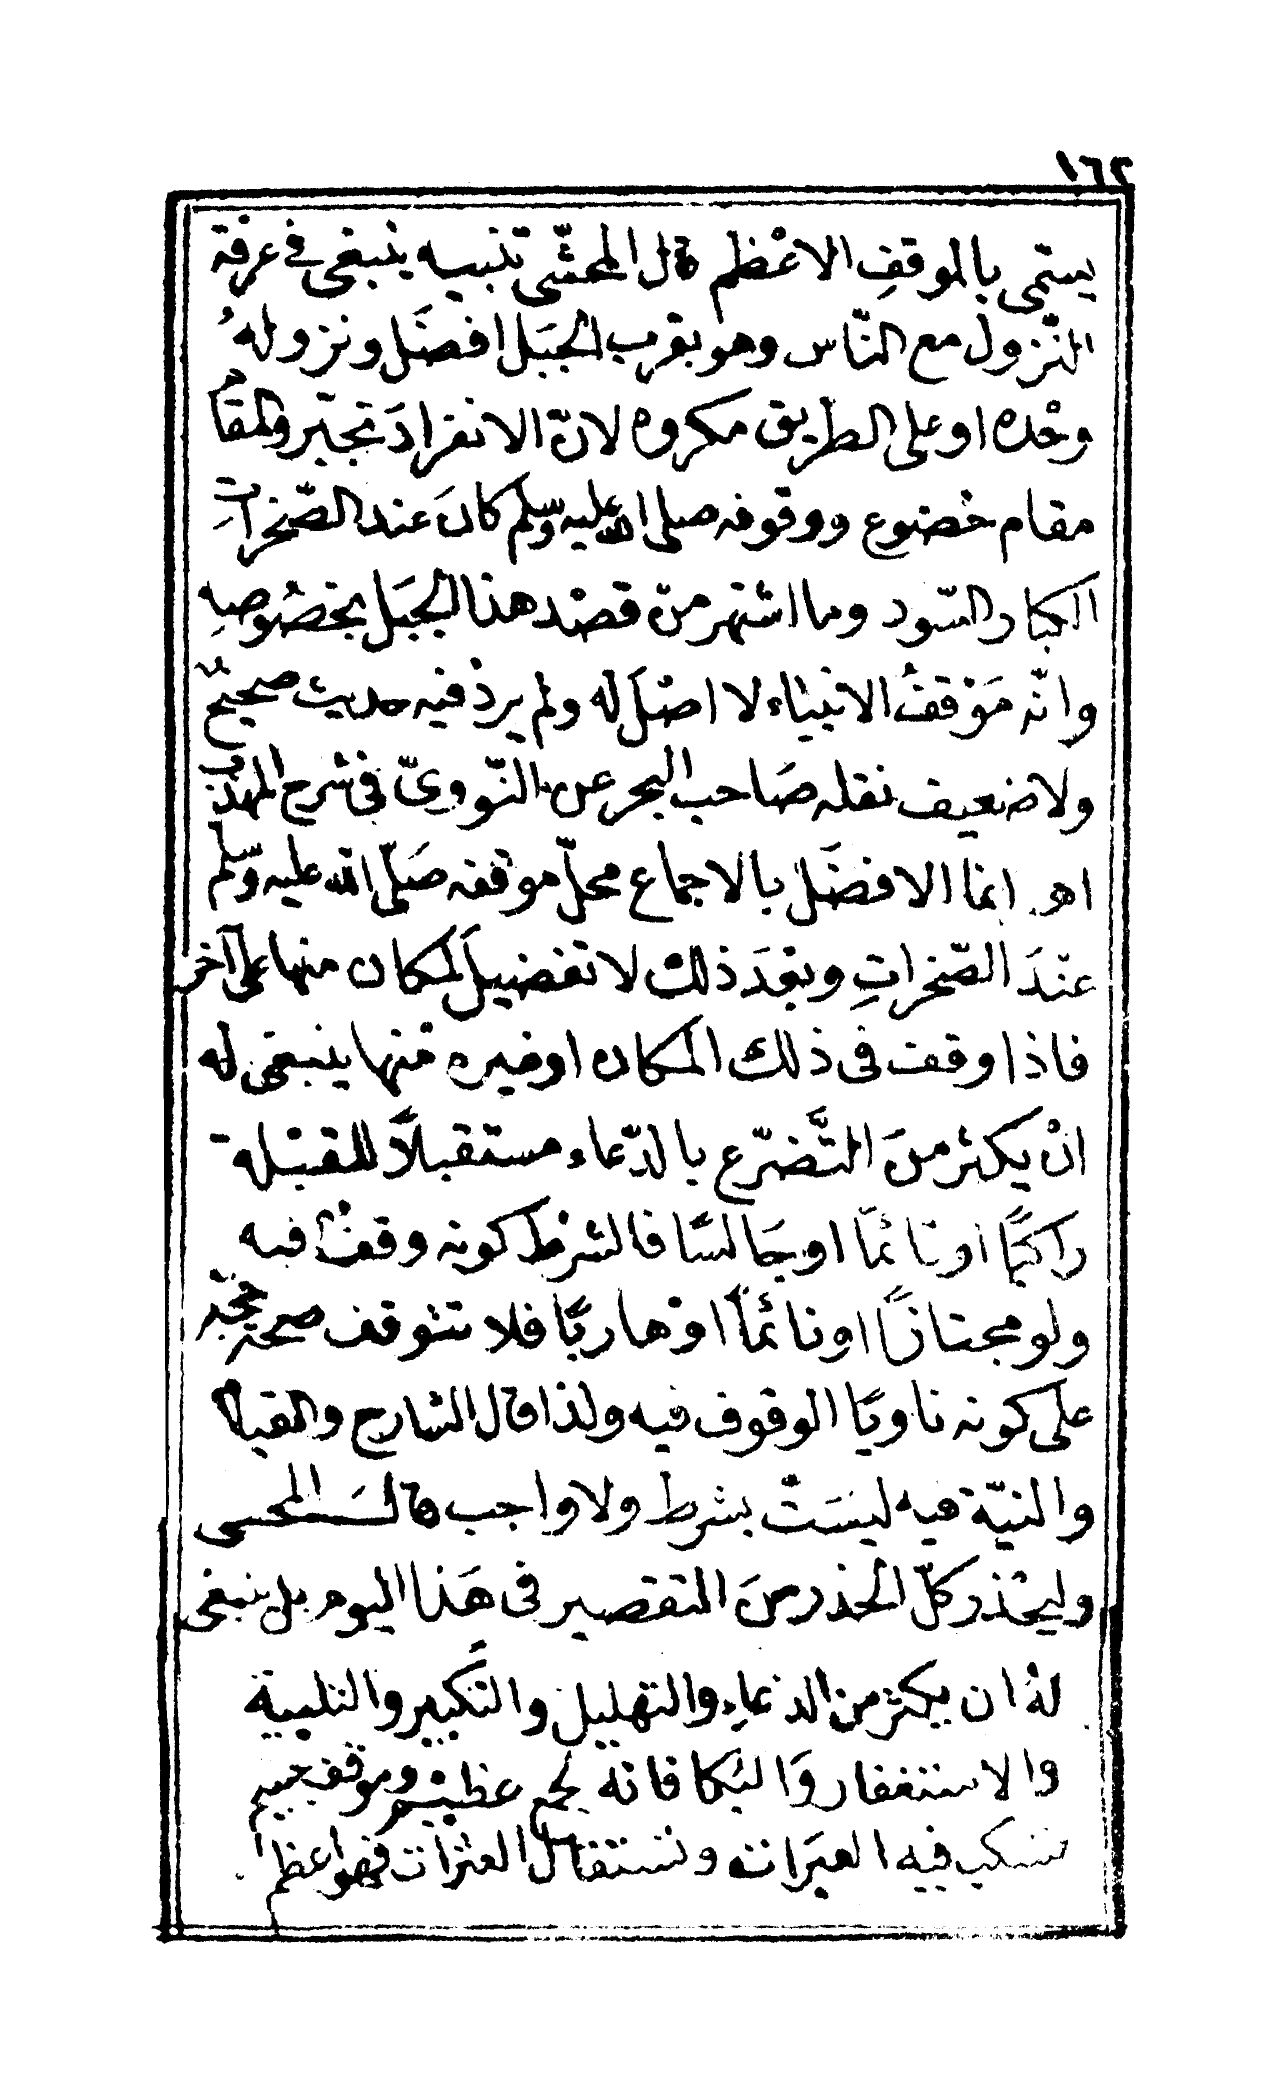 ١٦٢
يسمّى بالموقفِ الاعْظم قال المحشّى تنبيه ينبغى فى عرفة
النّزول مع النّاس وهو بقرب الجبَل افضَل ونزولهُ
وحْده او على الطريق مكروه لانّ الانفرادَ تجبّر والمقامُ
مقام خضوع ووقوفه صلى الله عليه وسّلم كانَ عند الصّخراتِ
الكبار السّود وما اشتهر منْ قصْد هذا الجبَل بخصُوصِه
وانّه مَوْقفُ الانبيَاء لا اصْلَ له ولم يردْ فيه حديث صحيحٌ
ولا ضعيف نقله صَاحب البحر عن النّووىّ فى شرح المهذّب
اهـ انما الافضَل بالاجماع محلّ موقفه صَلّى الله عليه وسّلم
عنْدَ الصّخراتِ وبعْدَ ذلك لا تفضيلَ لمكان منها على آخر
فاذا وقفت فى ذلك المكان او غيره منْها ينبغى له
انْ يكثر منَ التَّضرّع بالدّعاء مستقبلاً للقبْلة
راكبًا او نائمًا او جَالسًا فالشرْط كونه وقفْت فيه
ولو مجتازًا او نائمًا اوْ هاربًا فلا تتوقف صحة حجّه
على كونه ناويًا الوقوف فيه ولذا قال الشارح والقبلا
والنيّة فيه ليسَتْ بشرط ولا واجب قالَ المحسى
وليحْذر كلّ الحذر منَ التقصير فى هَذا اليوم بل ينبغى
لهُ ان يكثر من الدعاءِ والتهليل والتَّكبير والتلبية
والاستغفار وَالبُكا فانه لجمع عظيْم وموقف جسيم
تسكب فيه العبَرات وتستقال العثرات فهو اعظم